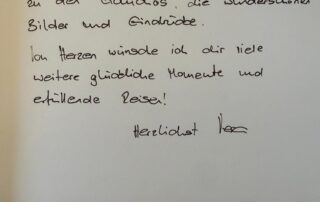 zu den            , die wunderschönen
Bilder und Eindrücke.
Von Herzen wünsche ich dir viele
weitere glückliche Momente und
erfüllende Reisen!
Herzlichst